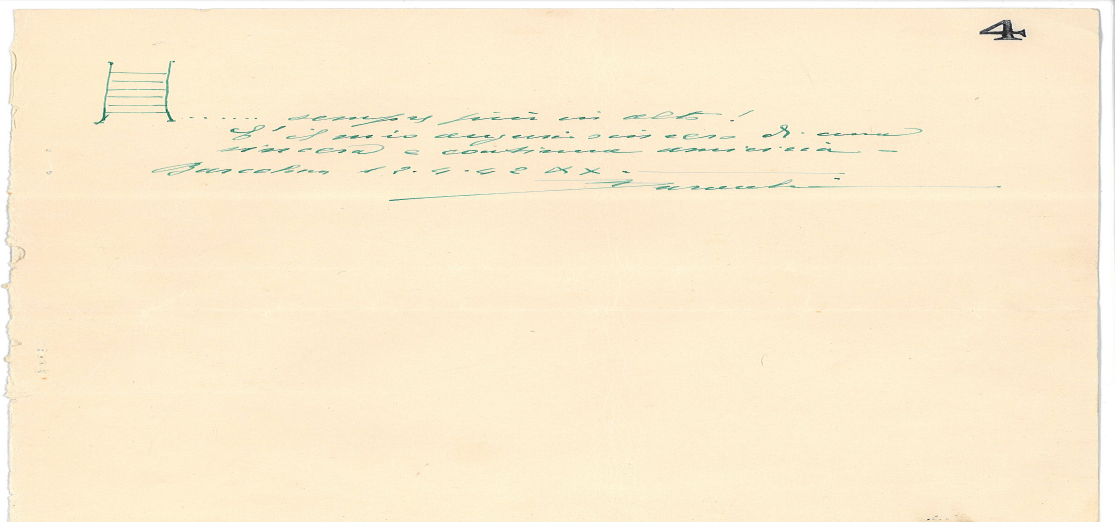 4
...... sempre più in alto!
E' il mio augurio sincero di una
sincera e continua amicizia -
Barcelona 18.4.42 XX.